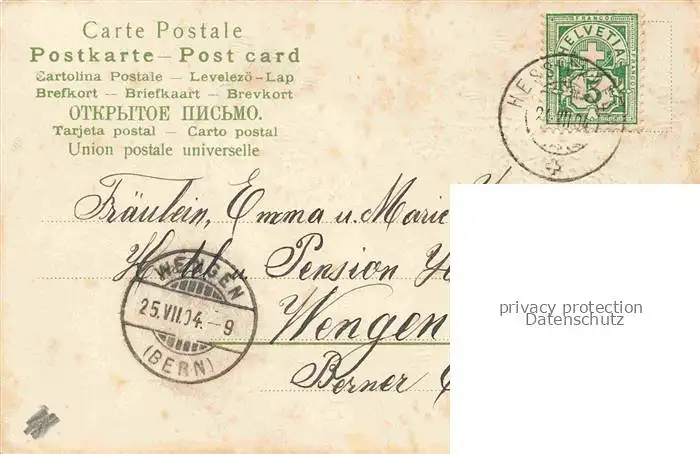 Carte Postale
Postkarte – Post card
Cartolina Postale – Levelezö-Lap
Brefkort – Briefkaart – Brevkort
ОТКРЫТОЕ ПИСЬМО.
Tarjeta postal – Carto postal
Union postale universelle
FRANCO
HELVETIA
FRANCO
FRANCO
5
VII.04
Fräulein, Emma u. Marie
Hotel u. Pension
Wengen
Berner
WENGEN
25.VII.04.–9
(BERN)
privacy protection
Datenschutz